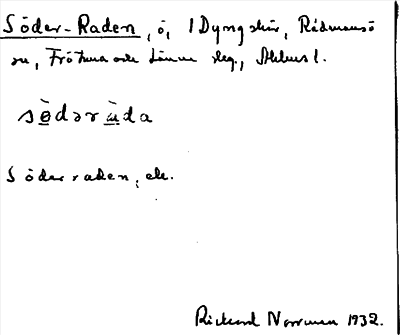 Söder-Raden, ö, i Dyngskär, Rådmansö
sn, Frötuna och Länna skg., Sthms l.
södəruda
Söderraden, ek.
Rickard Norrman 1932.